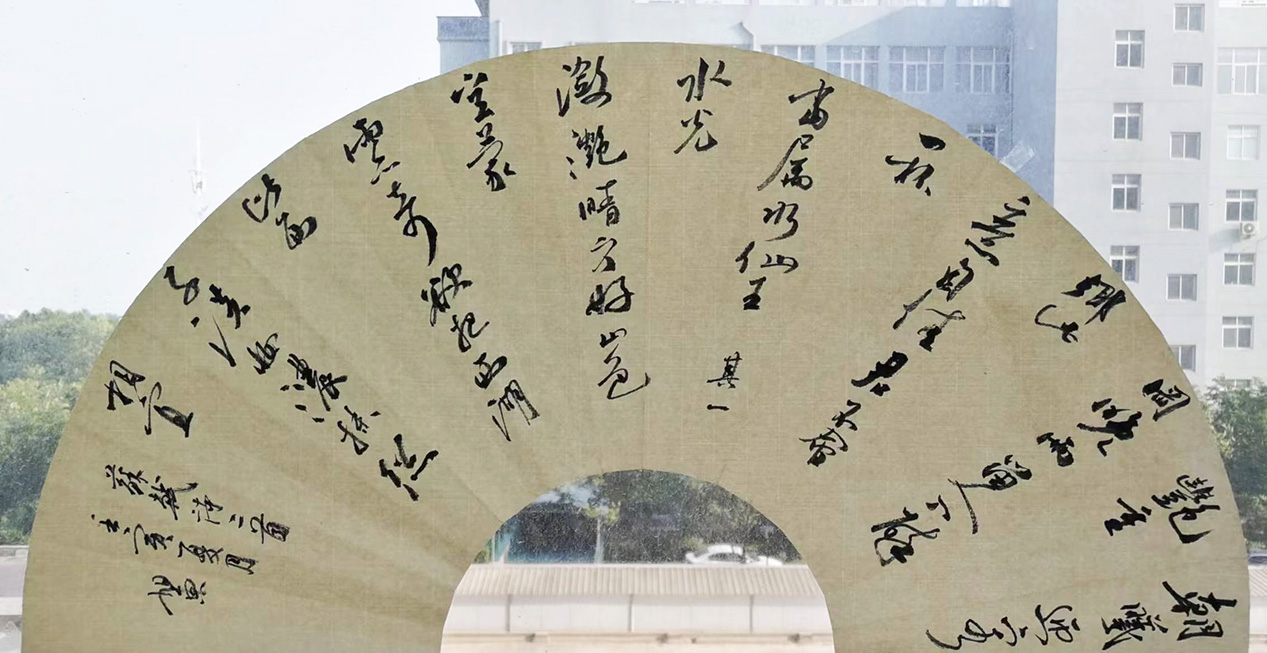 朝曦迎客
艷重
岡晚雨留人入醉
鄉此
意自佳君不會
一杯
當屬水仙王
其一
水光
瀲灩晴方好山色
空蒙
雨亦奇欲把西湖
比西
子淡妝濃抹總
相宜
蘇軾詩二首
壬寅夏月